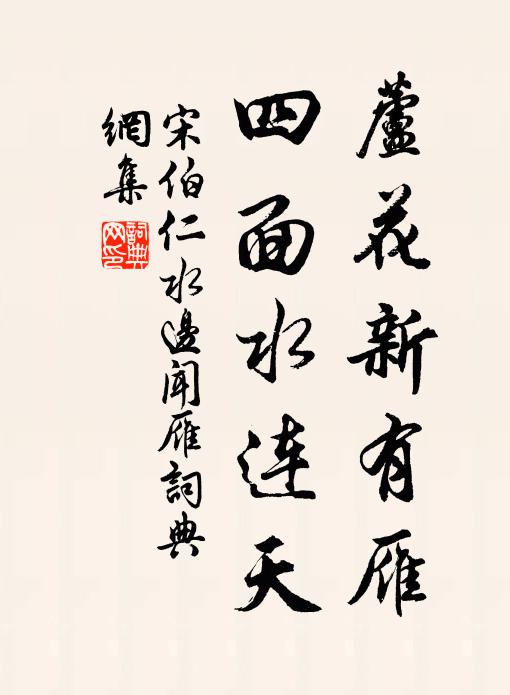 蘆花新有雁
四面水連天
宋伯仁水邊聞雁詞典
網集
詞典网印